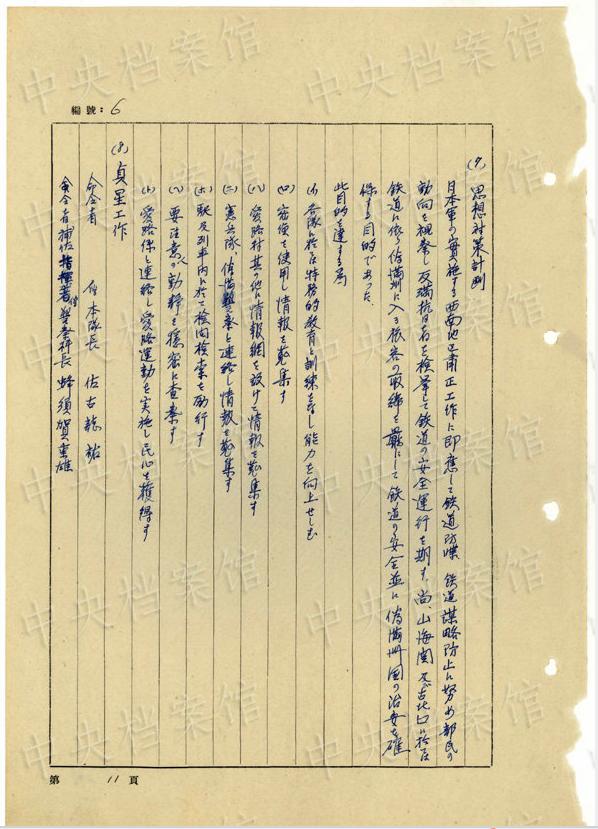 編號：6
(7) 思想対策計画
日本軍の実施する西南地区粛正工作に即應して鉄道防諜、鉄道謀略防止に努め部民の
動向を視察し反満抗日者を検挙して鉄道の安全運行を期す、尚、山海関及び古北口に於ては
鉄道に依る偽満州に入る旅客の取締を厳にして鉄道の安全並に偽満州国の治安を確
保する目的であった。
此目的を達する為
(イ) 各隊に於ては特務的教育と訓練を為し能力を向上せしむ
(ロ) 密偵を使用し情報を蒐集す
(ハ) 愛路村其の他に情報網を設けて情報を蒐集す
(ニ) 憲兵隊、偽満警察と連絡し情報を蒐集す
(ホ) 駅及列車内に於て検問検索を励行す
(ヘ) 要注意人の動静を隠密に査察す
(ト) 愛路係と連絡し愛路運動を実施し民心を獲得す
(8) 貞星工作
命令者 本隊長 佐古龍祐
命令者補佐指揮者 警務科長 蜂須賀重雄
第 11 頁
中央档案馆